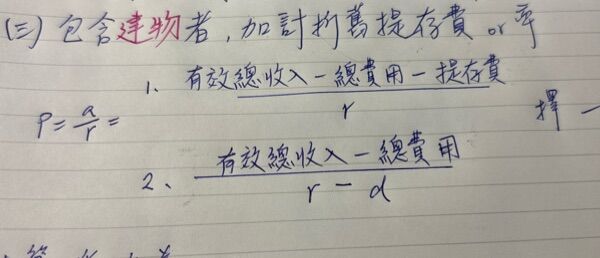 (三) 包含建物者，加計折舊提存費 or 率
1、有效總收入－總費用－提存費
r
P = a/r =
擇一
2、有效總收入－總費用
r － d